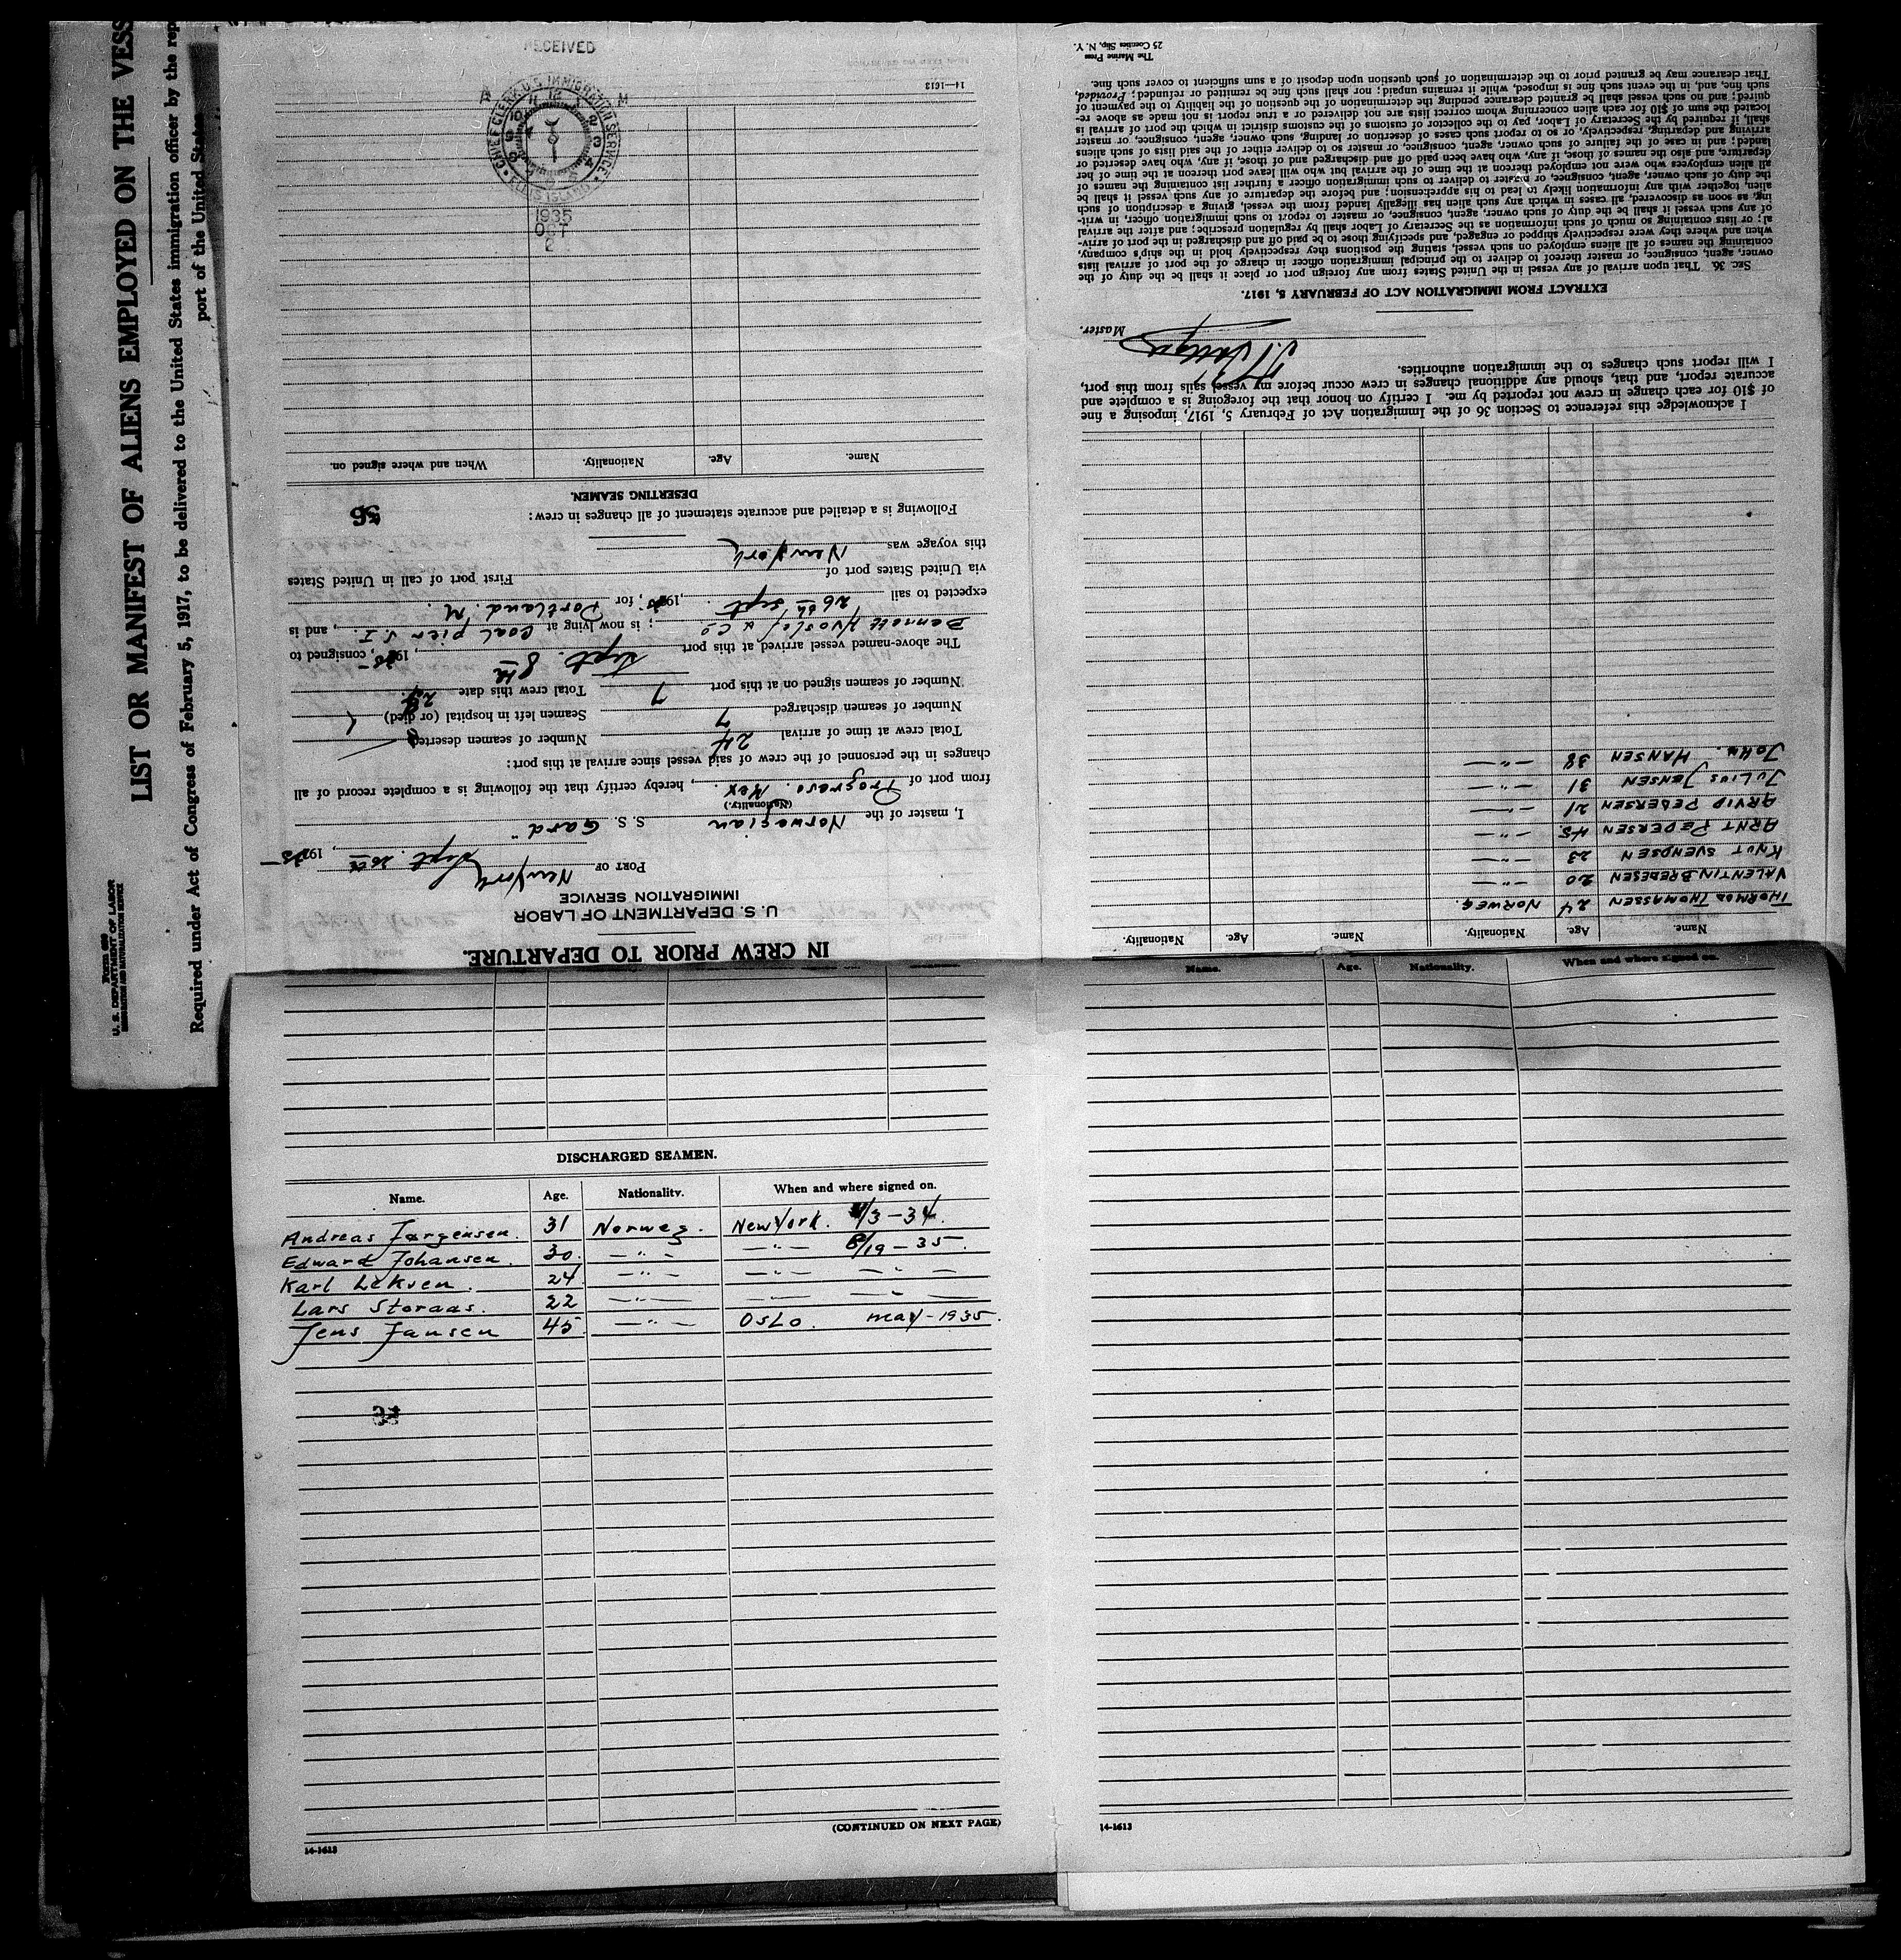 LIST OR MANIFEST OF ALIENS EMPLOYED ON THE VESS
Required under Act of Congress of February 5, 1917, to be delivered to the United States immigration officer by the rep
port of the United States
U. S. DEPARTMENT OF LABOR
IN CREW PRIOR TO DEPARTURE.
U. S. DEPARTMENT OF LABOR
IMMIGRATION SERVICE
PORT OF New York Sept. 26th, 1935
I, master of the Norwegian S. S. "Gard"
(Nationality.)
from port of Progreso. Mex., hereby certify that the following is a complete record of all
changes in the personnel of the crew of said vessel since arrival at this port:
Total crew at time of arrival 24 Number of seamen deserted
Number of seamen discharged 7 Seamen left in hospital (or died)
Number of seamen signed on at this port 7 Total crew this date
The above-named vessel arrived at this port Sept. 8th, 1935, consigned to
Bennett Hvoslef & Co; is now lying at Coal pier S. I., and is
expected to sail 26th Sept., 1935, for Portland. M.
via United States port of First port of call in United States
this voyage was New York
Following is a detailed and accurate statement of all changes in crew:
DESERTING SEAMEN.
Name. Age. Nationality. When and where signed on.
14—1613
RECEIVED
CHIEF CLERK U.S. IMMIGRATION SERVICE
ELLIS ISLAND
1935
OCT
2
DISCHARGED SEAMEN.
Name. Age. Nationality. When and where signed on.
Andreas Jørgensen. 31 Norweg. New York. /3-34.
Edward Johansen. 30. -"- -"- 8/19-35.
Karl Leksen. 24 -"- -"- -"-
Lars Storaas. 22 -"- -"- -"-
Jens Jansen 45 -"- Oslo. may-1935.
(CONTINUED ON NEXT PAGE)
14-1613
Name. Age. Nationality. When and where signed on.
14-1613
Name. Age. Nationality. Name. Age. Nationality.
THORMOD THOMASSEN 24 NORWEG.
VALENTIN BREDESEN 20 -"-
KNUT SVENDSEN 23 -"-
ARNT PEDERSEN 45. -"-
ARVID PEDERSEN 21 -"-
JULIUS JENSEN 31 -"-
JOHN. HANSEN 38 -"-
I acknowledge this reference to Section 36 of the Immigration Act of February 5, 1917, imposing a fine
of $10 for each change in crew not reported by me. I certify on honor that the foregoing is a complete and
accurate report, and that, should any additional changes in crew occur before my vessel sails from this port,
I will report such changes to the immigration authorities.
Master.
EXTRACT FROM IMMIGRATION ACT OF FEBRUARY 5, 1917.
SEC. 36. That upon arrival of any vessel in the United States from any foreign port or place it shall be the duty of the
owner, agent, consignee, or master thereof to deliver to the principal immigration officer in charge of the port of arrival lists
containing the names of all aliens employed on such vessel, stating the positions they respectively hold in the ship's company,
when and where they were respectively shipped or engaged, and specifying those to be paid off and discharged in the port of arriv-
al; or lists containing so much of such information as the Secretary of Labor shall by regulation prescribe; and after the arrival
of any such vessel it shall be the duty of such owner, agent, consignee, or master to report to such immigration officer, in writ-
ing, as soon as discovered, all cases in which any such alien has illegally landed from the vessel, giving a description of such
alien, together with any information likely to lead to his apprehension; and before the departure of any such vessel it shall be
the duty of such owner, agent, consignee, or master to deliver to such immigration officer a further list containing the names of
all alien employees who were not employed thereon at the time of the arrival but who will leave port thereon at the time of her
departure, and also the names of those, if any, who have been paid off and discharged and of those, if any, who have deserted or
landed; and in case of the failure of such owner, agent, consignee, or master so to deliver either of the said lists of such aliens
arriving and departing, respectively, or so to report such cases of desertion or landing, such owner, agent, consignee, or master
shall, if required by the Secretary of Labor, pay to the collector of customs of the customs district in which the port of arrival is
located the sum of $10 for each alien concerning whom correct lists are not delivered or a true report is not made as above re-
quired; and no such vessel shall be granted clearance pending the determination of the question of the liability to the payment of
such fine, and, in the event such fine is imposed, while it remains unpaid; nor shall such fine be remitted or refunded; Provided,
That clearance may be granted prior to the determination of such question upon deposit of a sum sufficient to cover such fine.
The Marine Press
25 Coenties Slip, N. Y.